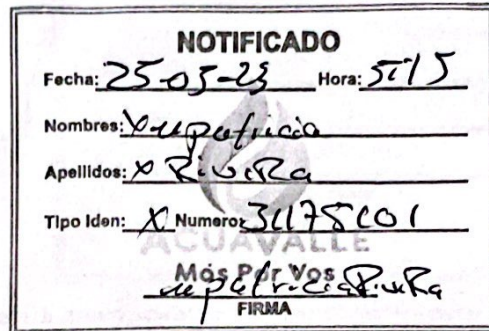 NOTIFICADO
Fecha: 25-05-23 Hora: 5:15
Nombres: X m patricia
Apellidos: X RiveRa
Tipo Iden: X Numero: 31175601
ACUAVALLE
Más Por Vos
m patricia RiveRa
FIRMA